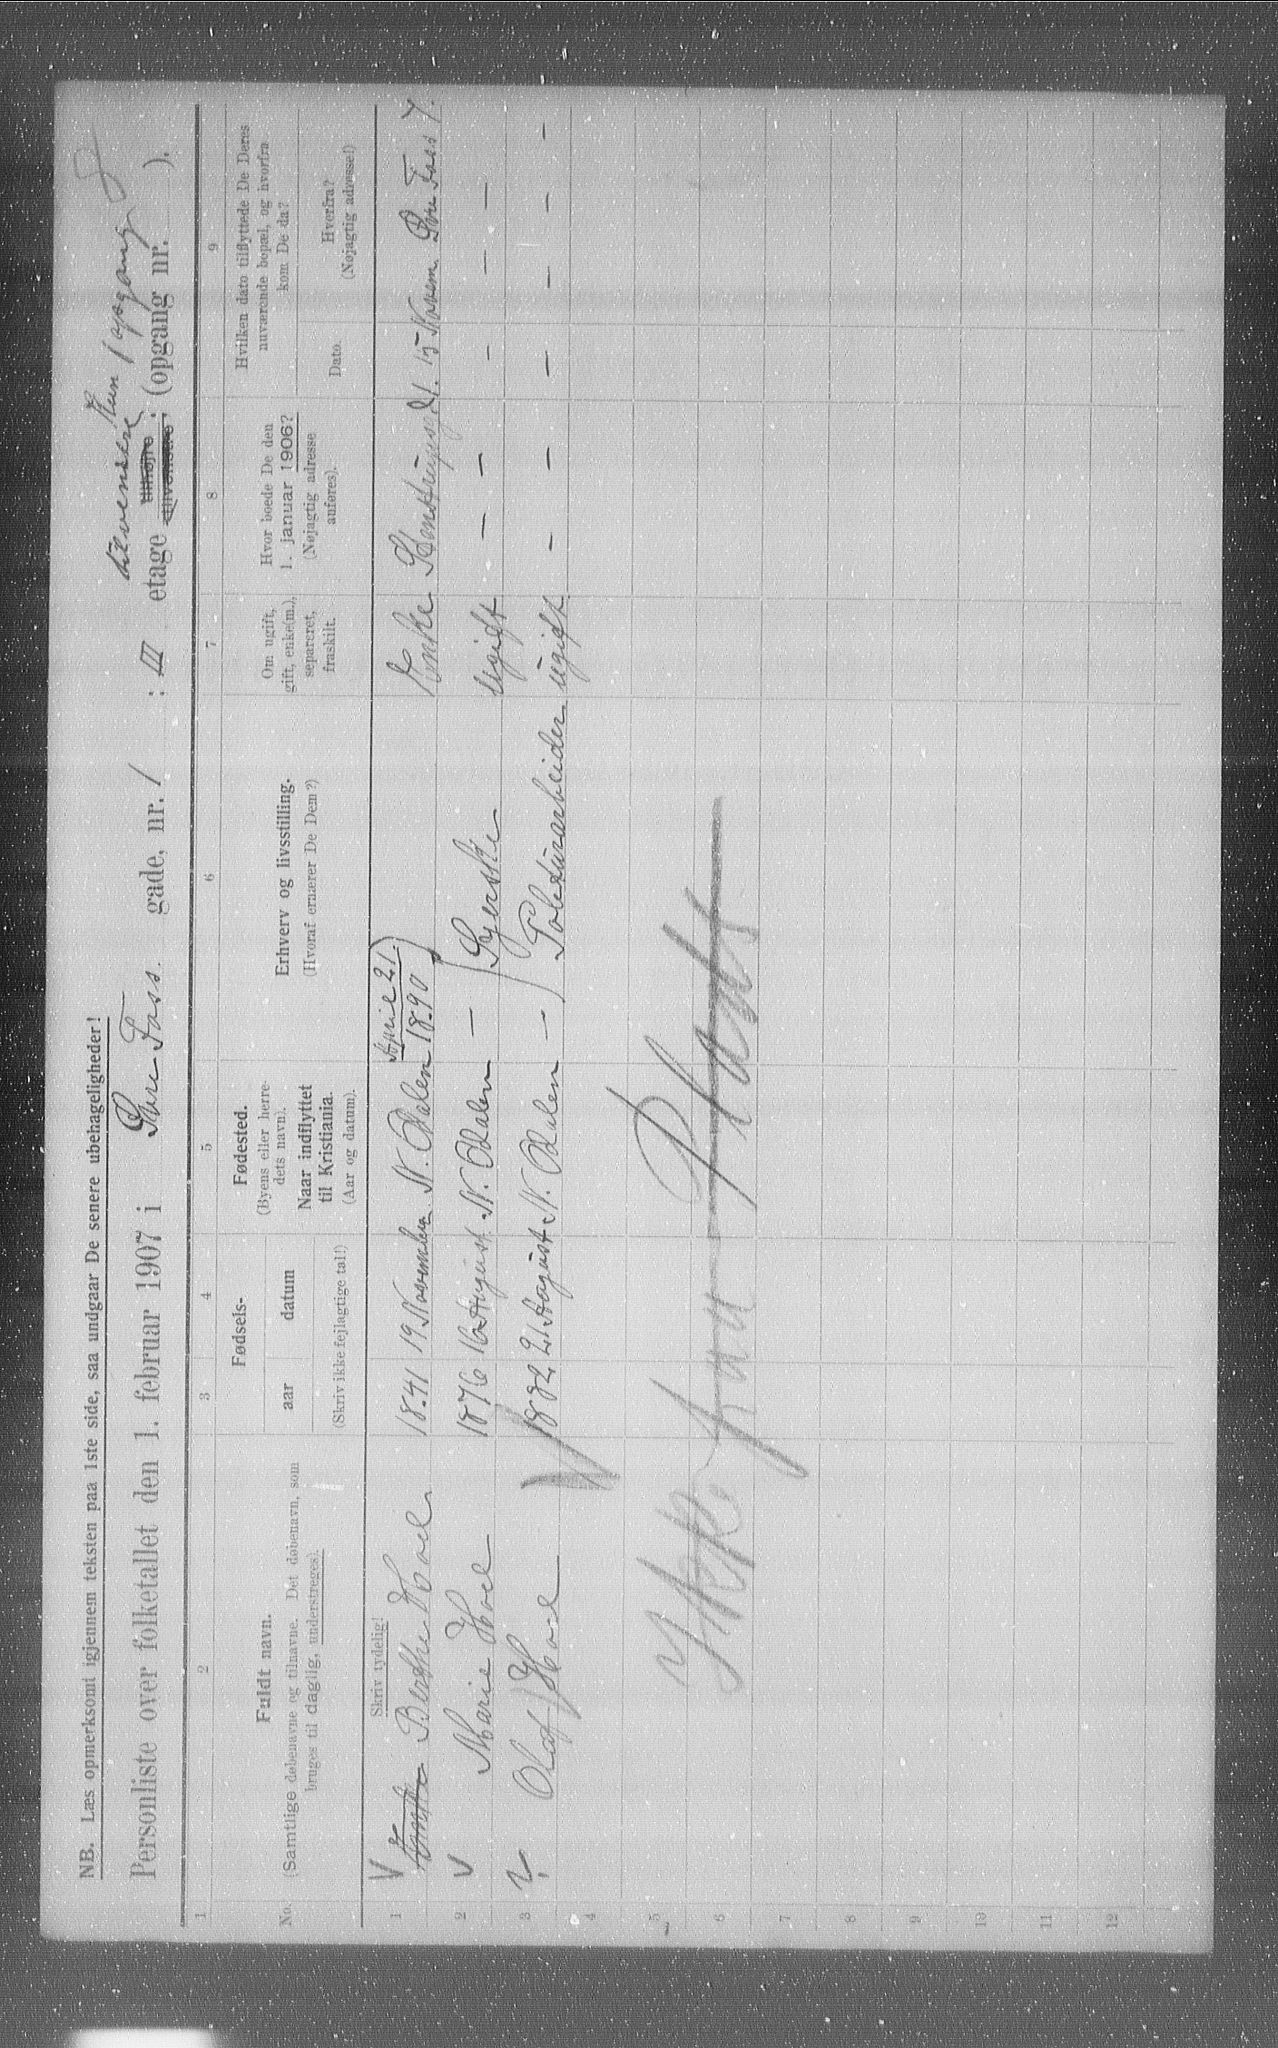 NB. Læs opmerksomt igjennem teksten paa 1ste side, saa undgaar De senere ubehageligheder!
Personliste over folketallet den 1. februar 1907 i Tore Foss. gade, nr. 1 : III etage tilhøjre tilvenstre; (opgang nr. 8 ).
1 2 3 4 5 6 7 8 9
No.
Fuldt navn.
(Samtlige døbenavne og tilnavne. Det døbenavn, som
bruges til daglig, understreges).
Fødsels-
aar datum
(Skriv ikke fejlagtige tal!)
Fødested.
(Byens eller herre-
dets navn).
Naar indflyttet
til Kristiania.
(Aar og datum).
Erhverv og livsstilling.
(Hvoraf ernærer De Dem?)
Om ugift,
gift, enke(m.),
separeret,
fraskilt.
Hvor boede De den
1. januar 1906?
(Nøjagtig adresse
anføres).
Hvilken dato tilflyttede De Deres
nuværende bopæl, og hvorfra
kom De da?
Dato.
Hvorfra?
(Nøjagtig adresse!)
Skriv tydelig!
April 21.
1 Enke Berthe Hoel. 1841 19 November N. Odalen 1890 Enke 21. 15 Novem. Tore Foss 7.
2 Marie Hoel 1876 16 August N. Odalen — Syerske Ugift — — — — —
3 Olaf Hoel 1882 21 August N. Odalen — Poleturarbeider ugift — — — — — —
4
5
6
7
8
9
10
11
12